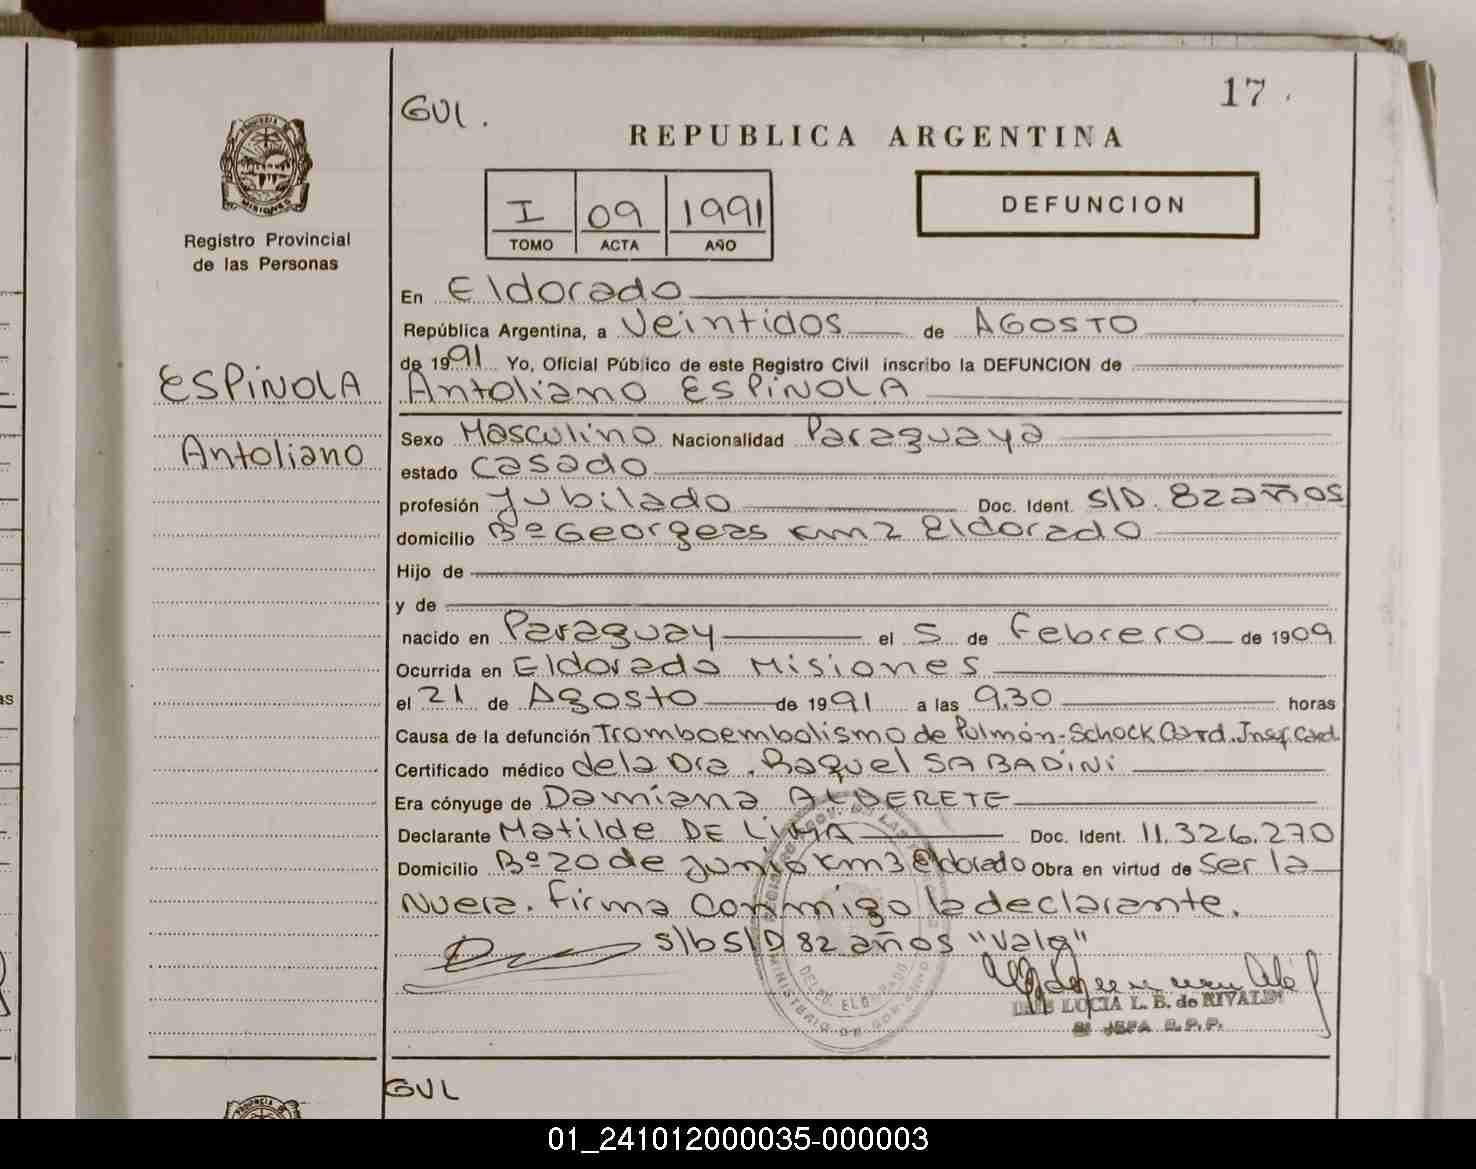 17
GUL.
REPUBLICA ARGENTINA
PROVINCIA DE
MISIONES
Registro Provincial
de las Personas
I 09 1991
TOMO ACTA AÑO
DEFUNCION
En Eldorado
República Argentina, a Veintidos de AGOSTO
de 1991 Yo, Oficial Público de este Registro Civil inscribo la DEFUNCION de
ESPINOLA
Antoliano ESPINOLA
Antoliano
Sexo Masculino Nacionalidad Paraguaya
estado Casado
profesión Jubilado Doc. Ident. S/D. 82 años
domicilio Bº Georgeas km 2 Eldorado
Hijo de
y de
nacido en Paraguay el 5 de Febrero de 1909
Ocurrida en Eldorado Misiones
el 21 de Agosto de 1991 a las 9.30 horas
Causa de la defunción Tromboembolismo de Pulmón-Schock Card. Insf. Card.
Certificado médico de la Dra. Raquel SABADINI
Era cónyuge de Damiana ALDERETE
Declarante Matilde DE LIMA Doc. Ident. 11.326.270
Domicilio Bº 20 de Junio km3 Eldorado Obra en virtud de Ser la
Nuera. Firma Conmigo la declarante.
s/b S/D 82 años "Vale"
LUCIA L. B. de RIVALDI
JEFA R.P.P.
MINISTERIO DE GOBIERNO
DELEG. ELDORADO
GUL
PROVINCIA
as
01_241012000035-000003